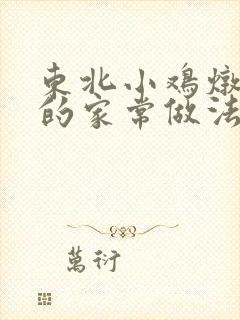 東北小鸡燉
的家常做法
萬衍